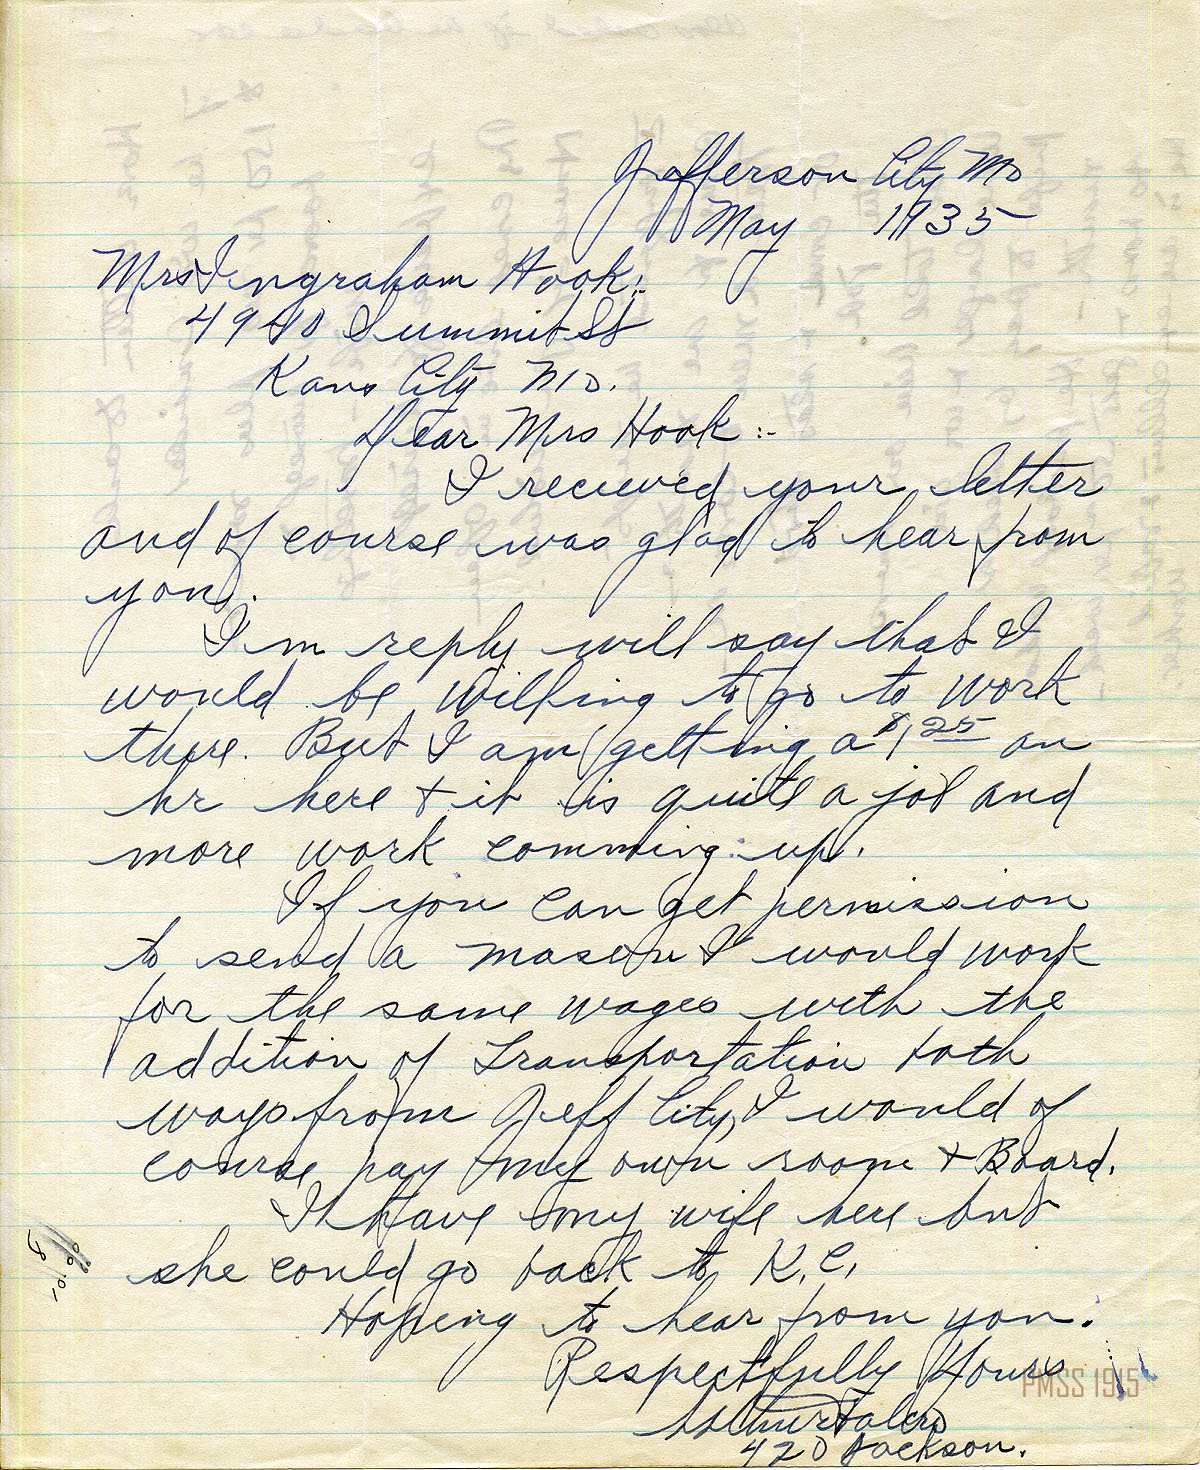 Jefferson City Mo
May 1935
Mrs Ingraham Hook:
4940 Summit St
Kans City Mo.
Dear Mrs Hook :-
I recieved your letter
and of course was glad to hear from
you.
In reply will say that I
would be willing to go to work
there. But I am getting a $1.25 an
hr here & it is quite a job and
more work comming up.
If you can get permission
to send a mason I would work
for the same wages with the
addition of Transportation both
ways from Jeff City, I would of
course pay my own room & Board.
I have my wife here but
she could go back to K.C.
Hoping to hear from you.
Respectfully Yours
PMSS 1915
420 Jackson.